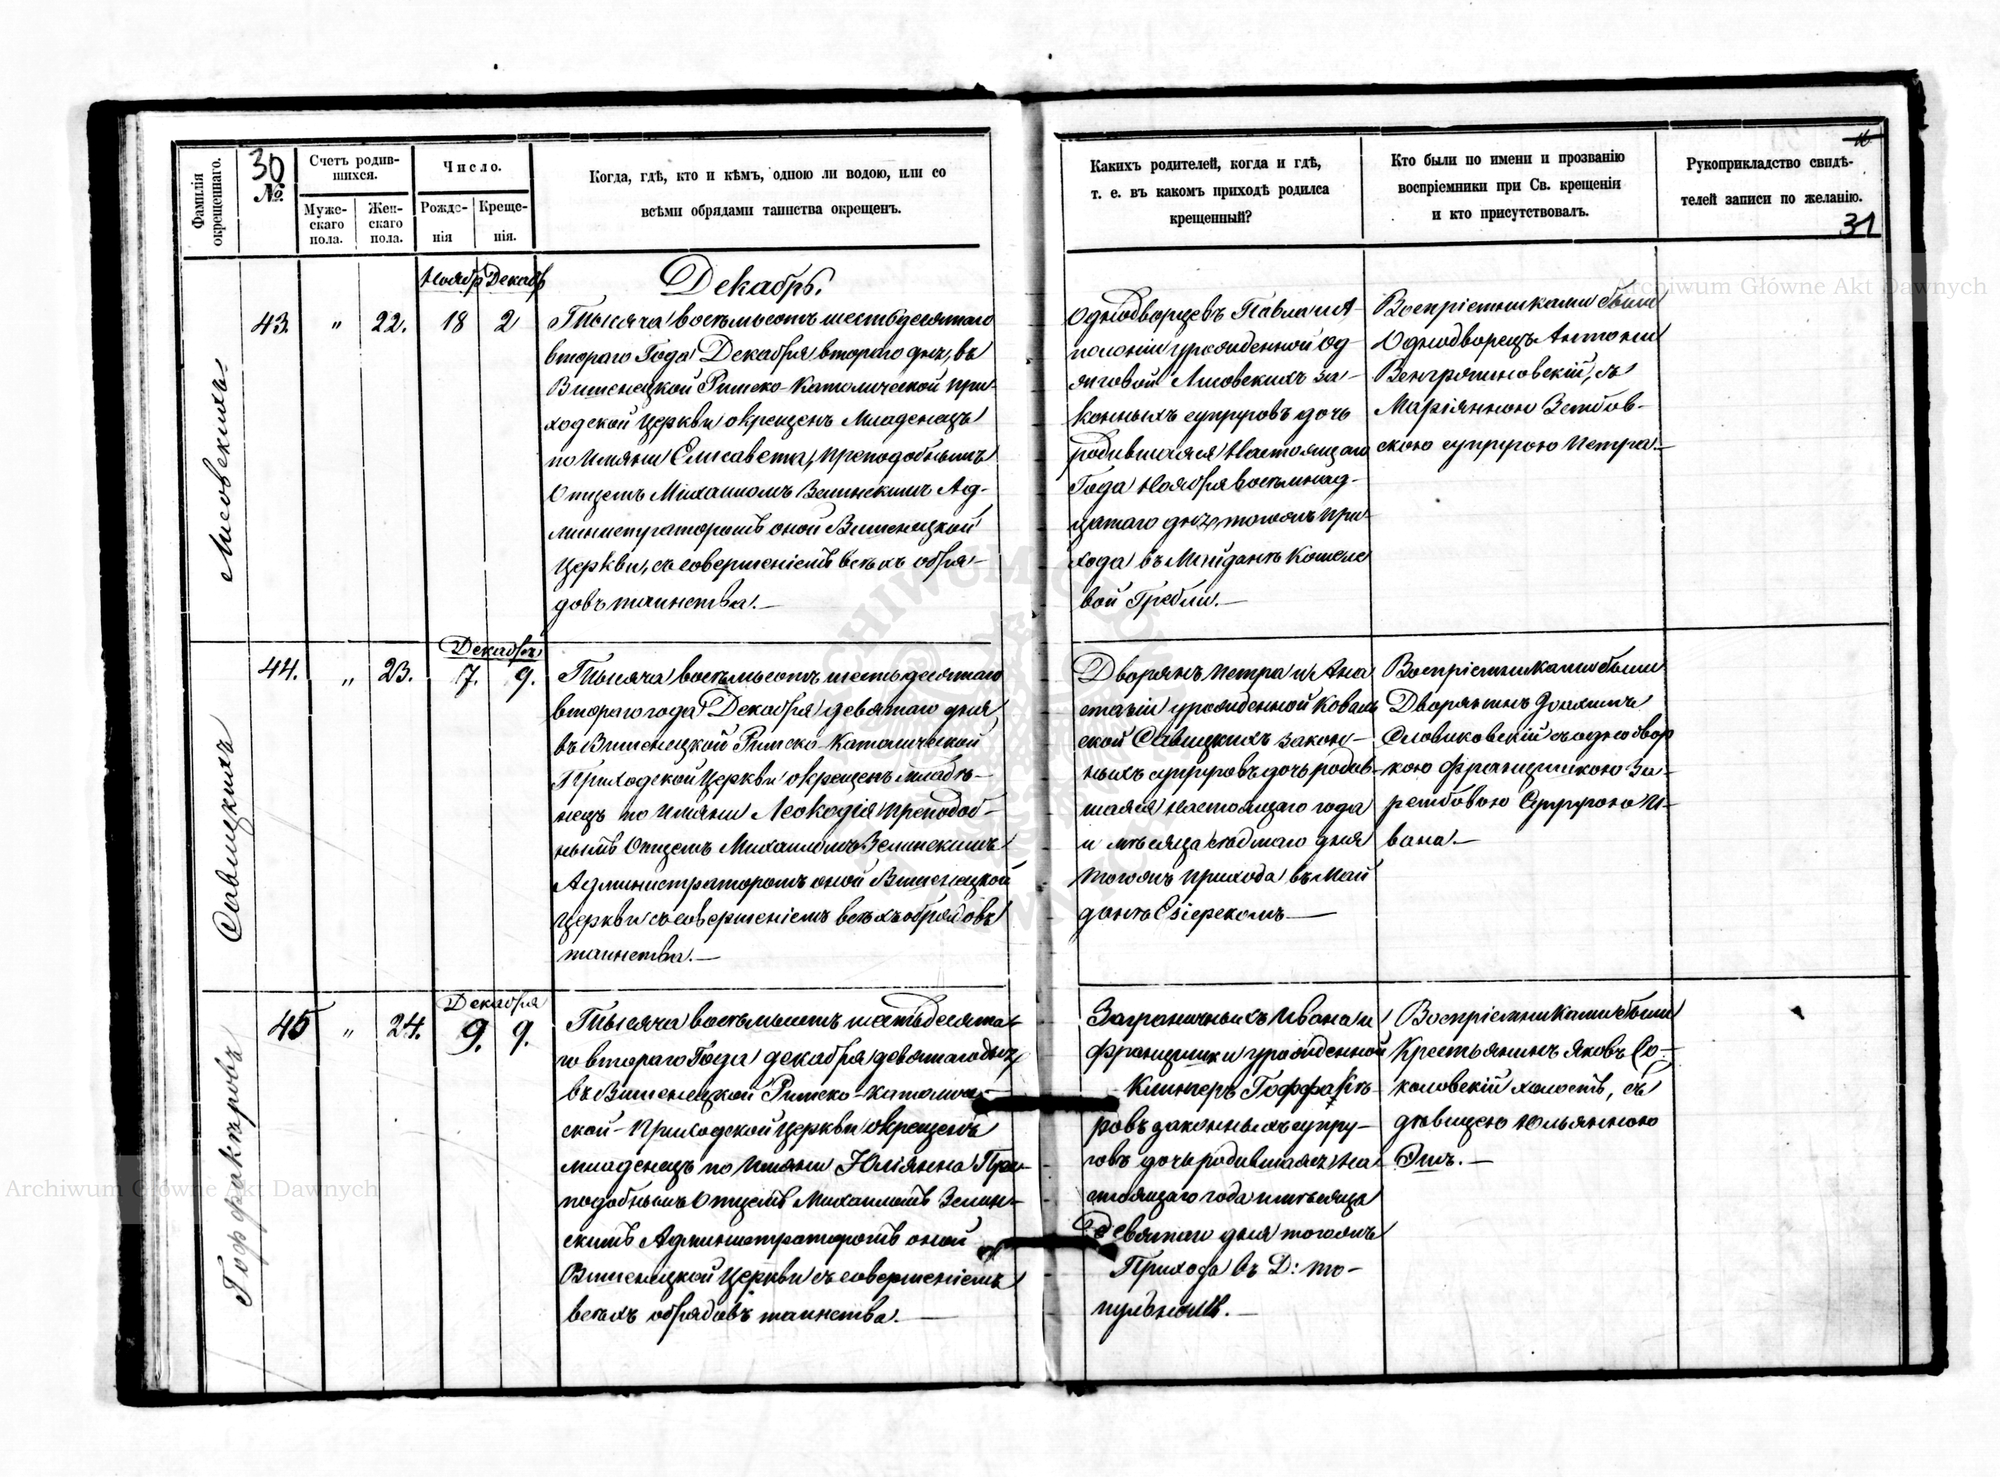 Фамилія окрещеннаго.
30
№.
Счетъ родив-
шихся.
Муже-
скаго
пола.
Жен-
скаго
пола.
Число.
Рожде-
нія
Креще-
нія.
Когда, гдѣ, кто и кѣмъ, одною ли водою, или со
всѣми обрядами таинства окрещенъ.
Лисовскихъ
43.
"
22.
Ноябр Декабр
18 2
Декабрь.
Тысяча восемьсотъ шестьдесятаго
втораго Года Декабря втораго дня, въ
Вишенецкой Римско-Католической при-
ходской Церкви окрещенъ Младенецъ
по Имяни Елисавета, Преподобнымъ
Отцемъ Михаиломъ Зелинскимъ Ад-
министраторомъ оной Вишенецкой
Церкви, съ совершеніемъ всѣхъ обря-
довъ таинства.—
Савицкихъ
44.
"
23.
Декабря
7. 9.
Тысяча восемьсотъ шестьдесятаго
втораго года Декабря девятаго дня
въ Вишенецкой Римско-Католической
Приходской Церкви окрещенъ младѣ-
нецъ по Имяни Леокадія Преподоб-
нымъ Отцемъ Михаиломъ Зелинскимъ
Администраторомъ оной Вишенецкой
Церкви съ совершеніемъ всѣхъ обрядовъ
таинства.—
Гоффакѣровъ
45
"
24.
Декабря
9. 9.
Тысяча восемьсотъ шестьдесята-
го втораго Года декабря девятаго дня
въ Вишенецкой Римско-Католиче-
ской Приходской Церкви окрещенъ
младенецъ по Имяни Юліянна Пре-
подобнымъ Отцемъ Михаиломъ Зелин-
скимъ Администраторомъ оной
Вишенецкой Церкви съ совершеніемъ
всѣхъ обрядовъ таинства.—
Какихъ родителей, когда и гдѣ,
т. е. въ какомъ приходѣ родился
крещенный?
Кто были по имени и прозванію
воспріемники при Св. крещеніи
и кто присутствовалъ.
Рукоприкладство свидѣ-
телей записи по желанію.
31
Однодворцевъ Павла и А-
полоніи урожденной Од
Лисовскихъ за-
конныхъ супруговъ дочь
родившаяся Настоящаго
Года Ноября восемнад-
цатаго дня, тогожъ при-
хода въ Майданѣ Кошеле
вой Гребли.—
Воспріемниками были
Однодворецъ Антоній
съ
Маріянною Зембов-
скою супругою Петра.—
Дворянъ Петра и Ана
стасіи урожденной Коваль
ской Савицкихъ закон-
ныхъ супруговъ дочь родив-
шаяся настоящаго года
и мѣсяца седмаго дня
тогожъ прихода въ Май
данѣ
Воспріемниками были
Дворянинъ Іоахимъ
Словиковскій съ однодвор
кою Францишкою За-
рембовою Супругою И-
вана.—
Заграничныхъ Ивана и
Францишки урожденной
Клингеръ Гоффакѣ-
ровъ законныхъ супру-
говъ дочь родившаяся На
стоящаго года и мѣсяца
Девятаго дня тогожъ
Прихода въ Д: То-
пульномъ.—
Воспріемниками были
Крестьянинъ Яковъ Со-
коловскій холостъ, съ
дѣвицею Юльянною
Archiwum Główne Akt Dawnych
Archiwum Główne Akt Dawnych